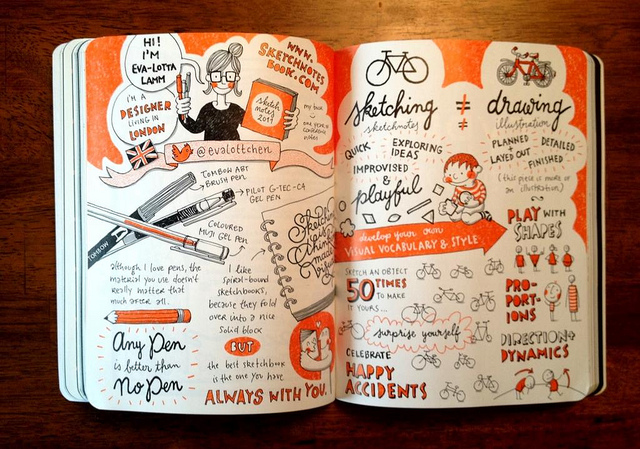 HI!
I'M
EVA-LOTTA
LAMM
I'M A
DESIGNER
LIVING IN
LONDON
WWW.
SKETCHNOTES
BOOK.COM
sketch
notes
2011
my book
one year of
conference
notes
@evalottchen
TOMBOW ABT
BRUSH PEN
PILOT G-TEC-C4
GEL PEN
COLOURED
MUJI GEL PEN
TOMBOW
although I love pens, the
material you use doesn't
really matter that
much after all.
Any Pen
is better than
No Pen
I like
spiral-bound
sketchbooks,
because they fold
over into a nice
solid block
BUT
the best sketchbook
is the one you have
ALWAYS WITH YOU.
sketching ≠ drawing
sketchnotes ≠ illustration
QUICK
EXPLORING
IDEAS
IMPROVISED
&
playful
PLANNED
+
LAYED OUT
DETAILED
FINISHED
(this piece is more of
an illustration)
develop your own
VISUAL VOCABULARY & STYLE
SKETCH AN OBJECT
50 TIMES
TO MAKE
IT YOURS...
surprise yourself
CELEBRATE
HAPPY
ACCIDENTS
PLAY WITH
SHAPES
PRO-
PORT-
IONS
DIRECTION+
DYNAMICS